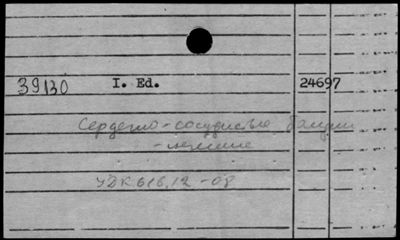 39130 I. Ed. 24697
Сердечно-сосудистые болезни
-лечение
УДК 616.12-08